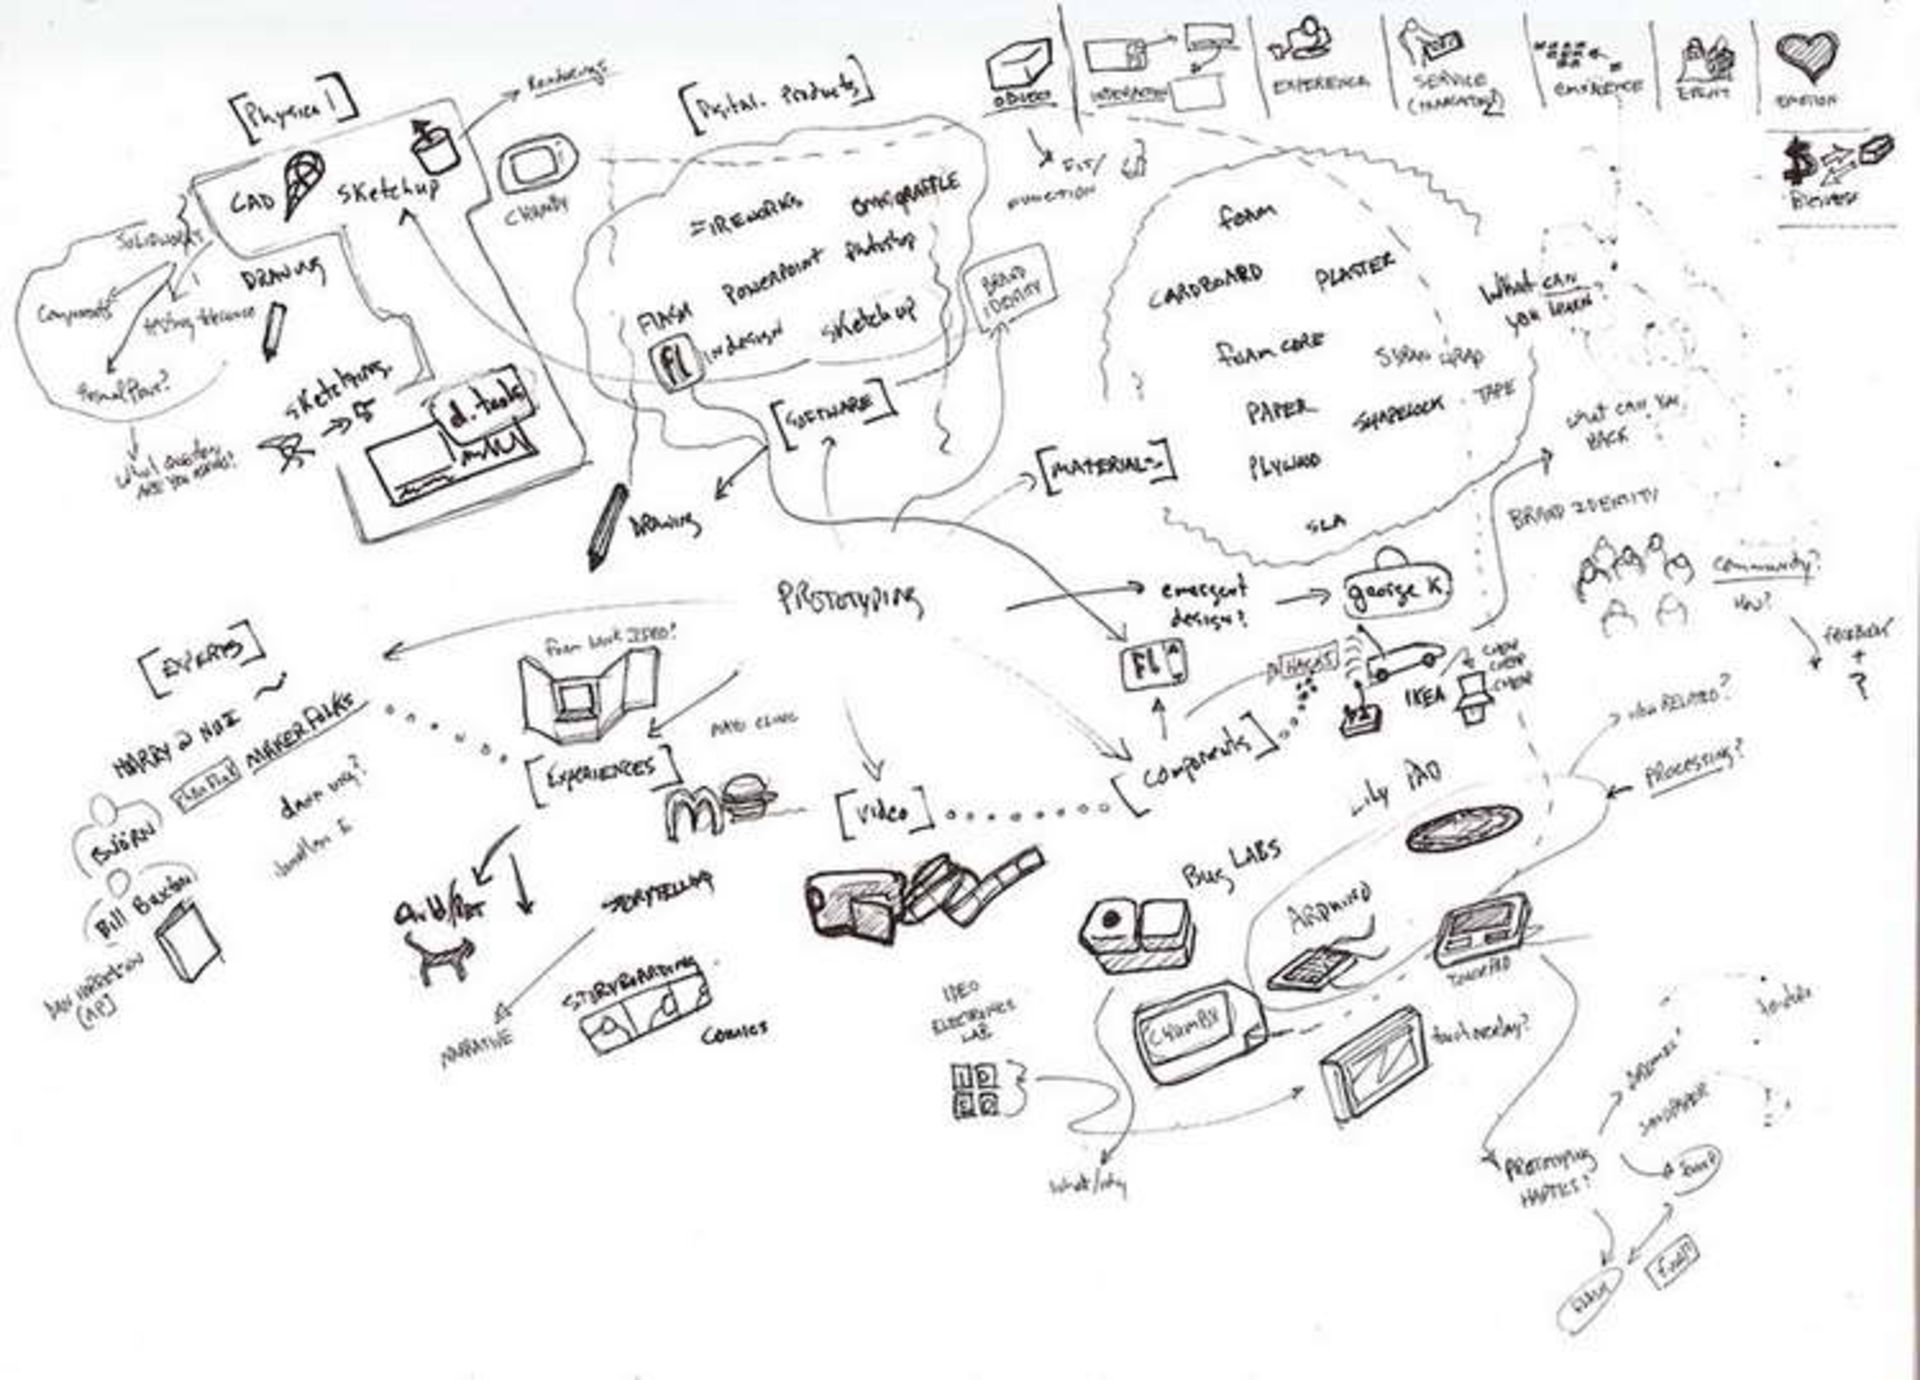 [Physical]
Renderings
[Digital Products]
OBJECT
INTERACTION
EXPERIENCE
SERVICE
EVENT
EMOTION
BUSINESS
CAD
SKetchup
CHUMBY
FUNCTION
SOLIDWORKS
DRAWING
Components
testing tolerance
Final Part?
What question
ARE YOU ASKING?
SKetching
d.tools
FIREWORKS
OMNIGRAFFLE
POWERPOINT
Photoshop
FLASH
fl
INdesign
SKetchup
BRAND
IDENTITY
[SOFTWARE]
DRAWING
[MATERIALS]
foam
CARDBOARD
PLASTER
foam CORE
SARAN WRAP
PAPER
SHAPELOCK
TAPE
PLYWOOD
SLA
What CAN
you learn?
what CAN YOU
HACK
BRAND IDENTITY
community?
How?
FACEBOOK
+
?
PROTOTYPING
emergent
design?
george K.
FL
HACKS
IKEA
CHEAP
CHEAP
CHEAP
[EXPERTS]
MAKER FOLKS
BJÖRN
Bill Buxton
DAN HARRELSON
[AP]
[EXPERIENCES]
MAYO CLINIC
M
[Video]
[Components]
Child/PET
STORYTELLING
NARRATIVE
STORYBOARDING
COMICS
HOW RELATED?
PROCESSING?
Lily PAD
Bug LABS
ARDUINO
CHUMBY
touch overlay?
IDEO
ELECTRONICS
LAB
I D
E O
what/why
PROTOTYPING
HAPTICS?
DREMEL
SANDPAPER
FLASH